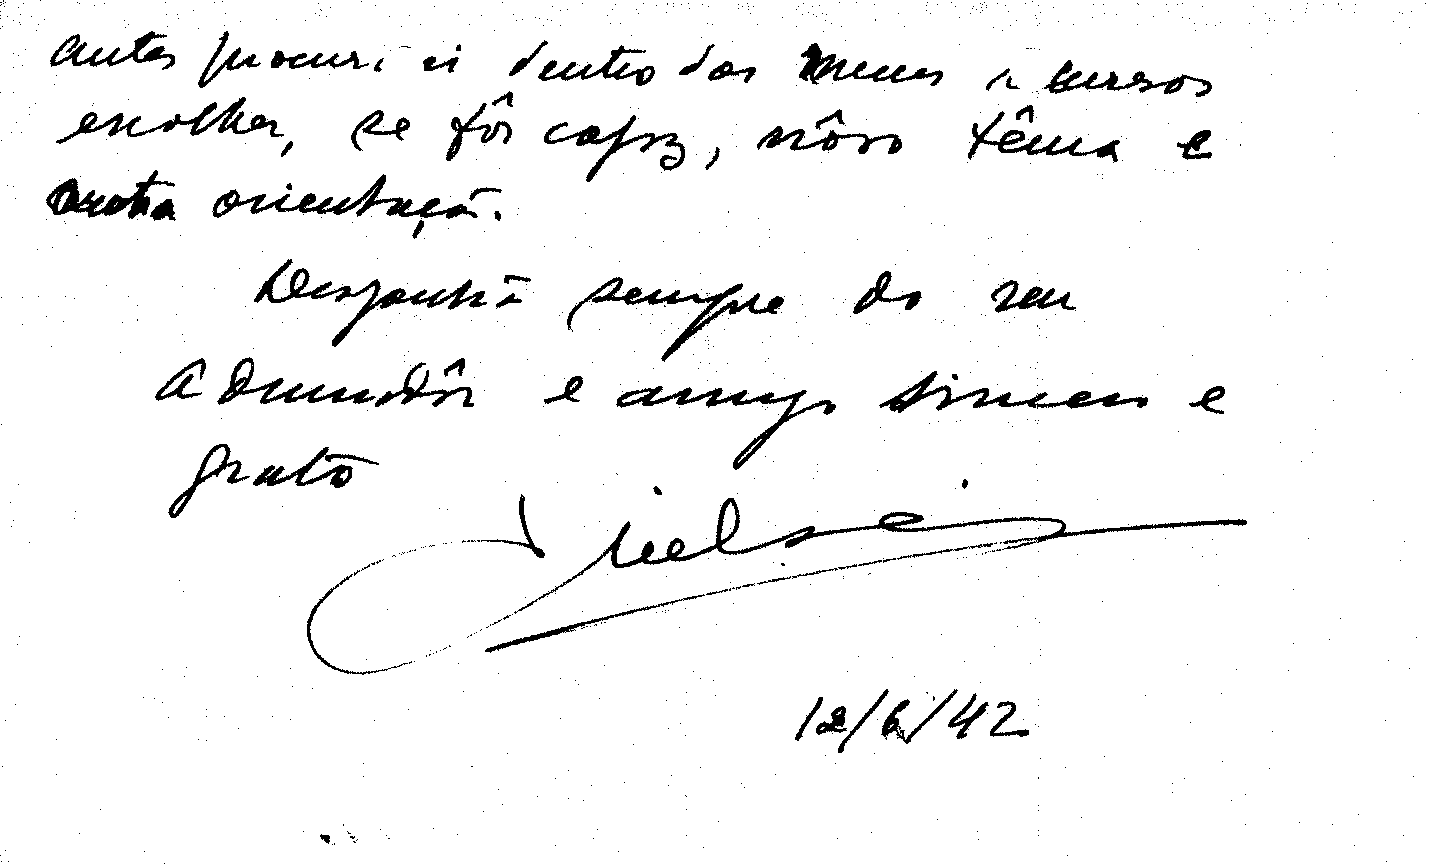 antes procurarei dentro dos meus recursos
escolher, se fôr capaz, nôvo têma e
outra orientação.
sempre do seu
Admiradôr e amigo sincero e
grato
12/6/42